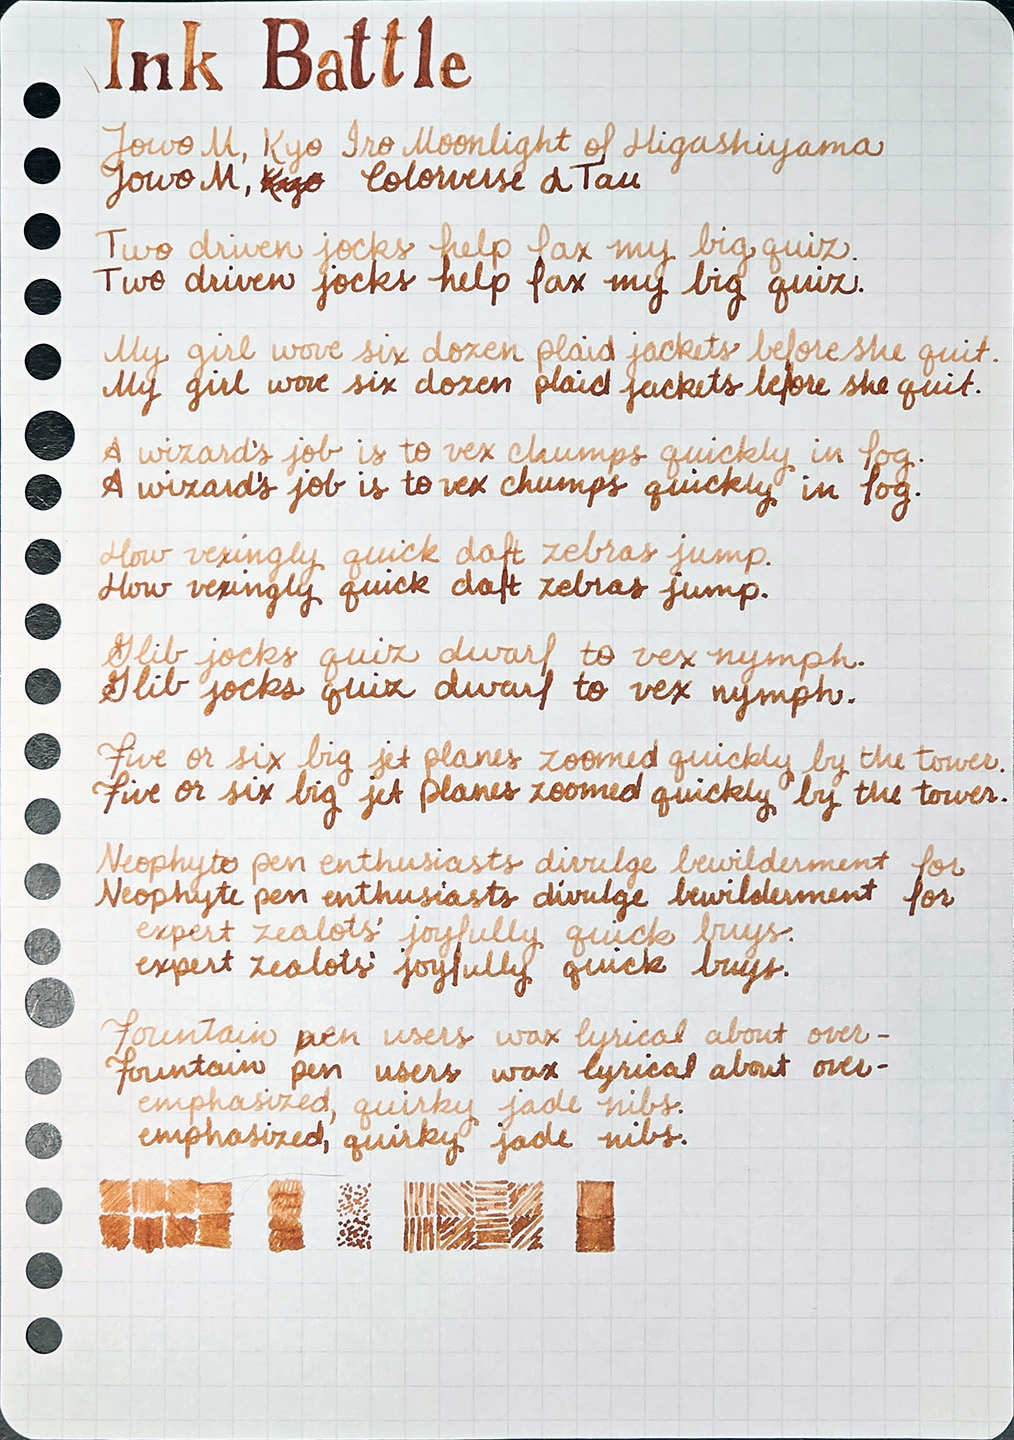 Ink Battle
Jowo M, Kyo Iro Moonlight of Higashiyama
Jowo M, Kyo Colorverse α Tau
Two driven jocks help fax my big quiz.
Two driven jocks help fax my big quiz.
My girl wove six dozen plaid jackets before she quit.
My girl wove six dozen plaid jackets before she quit.
A wizard's job is to vex chumps quickly in fog.
A wizard's job is to vex chumps quickly in fog.
How vexingly quick daft zebras jump.
How vexingly quick daft zebras jump.
Glib jocks quiz dwarf to vex nymph.
Glib jocks quiz dwarf to vex nymph.
Five or six big jet planes zoomed quickly by the tower.
Five or six big jet planes zoomed quickly by the tower.
Neophyte pen enthusiasts divulge bewilderment for
Neophyte pen enthusiasts divulge bewilderment for
expert zealots' joyfully quick buys.
expert zealots' joyfully quick buys.
Fountain pen users wax lyrical about over-
Fountain pen users wax lyrical about over-
emphasized, quirky jade nibs.
emphasized, quirky jade nibs.